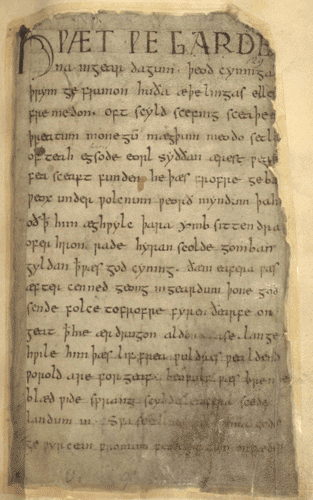 HǷÆT ǷE GARDE
na ingear dagum · þeod cyninga
þrym ge frunon huða æþelingas elle
fre medon · oft scyld scefing sceaþe
þreatum monegū mægþum meodo setl
of teah egsode eorl syððan ærest ƿear
fea sceaft funden he þæs frofre geba
ƿeox under ƿolcnum ƿeorð myndum þah
oð ꝥ him æghƿylc þara ymb sittendra
ofer hron rade hyran scolde gomban
gyldan ꝥ ƿæs god cyning · ðæm eafera ƿæs
æfter cenned geong ingeardum þone god
sende folce tofrofre fyren ðearfe on
geat ꝥ hie ær drugon aldor ase · lange
hƿile him þæs lif frea ƿuldres ƿealdend
ƿorold are for geaf · beoƿulf ƿæs breme
blæd ƿide sprang scyldes eafera scede
landum in · sƿa guma gode
ge ƿyrcean fromum feoh giftum